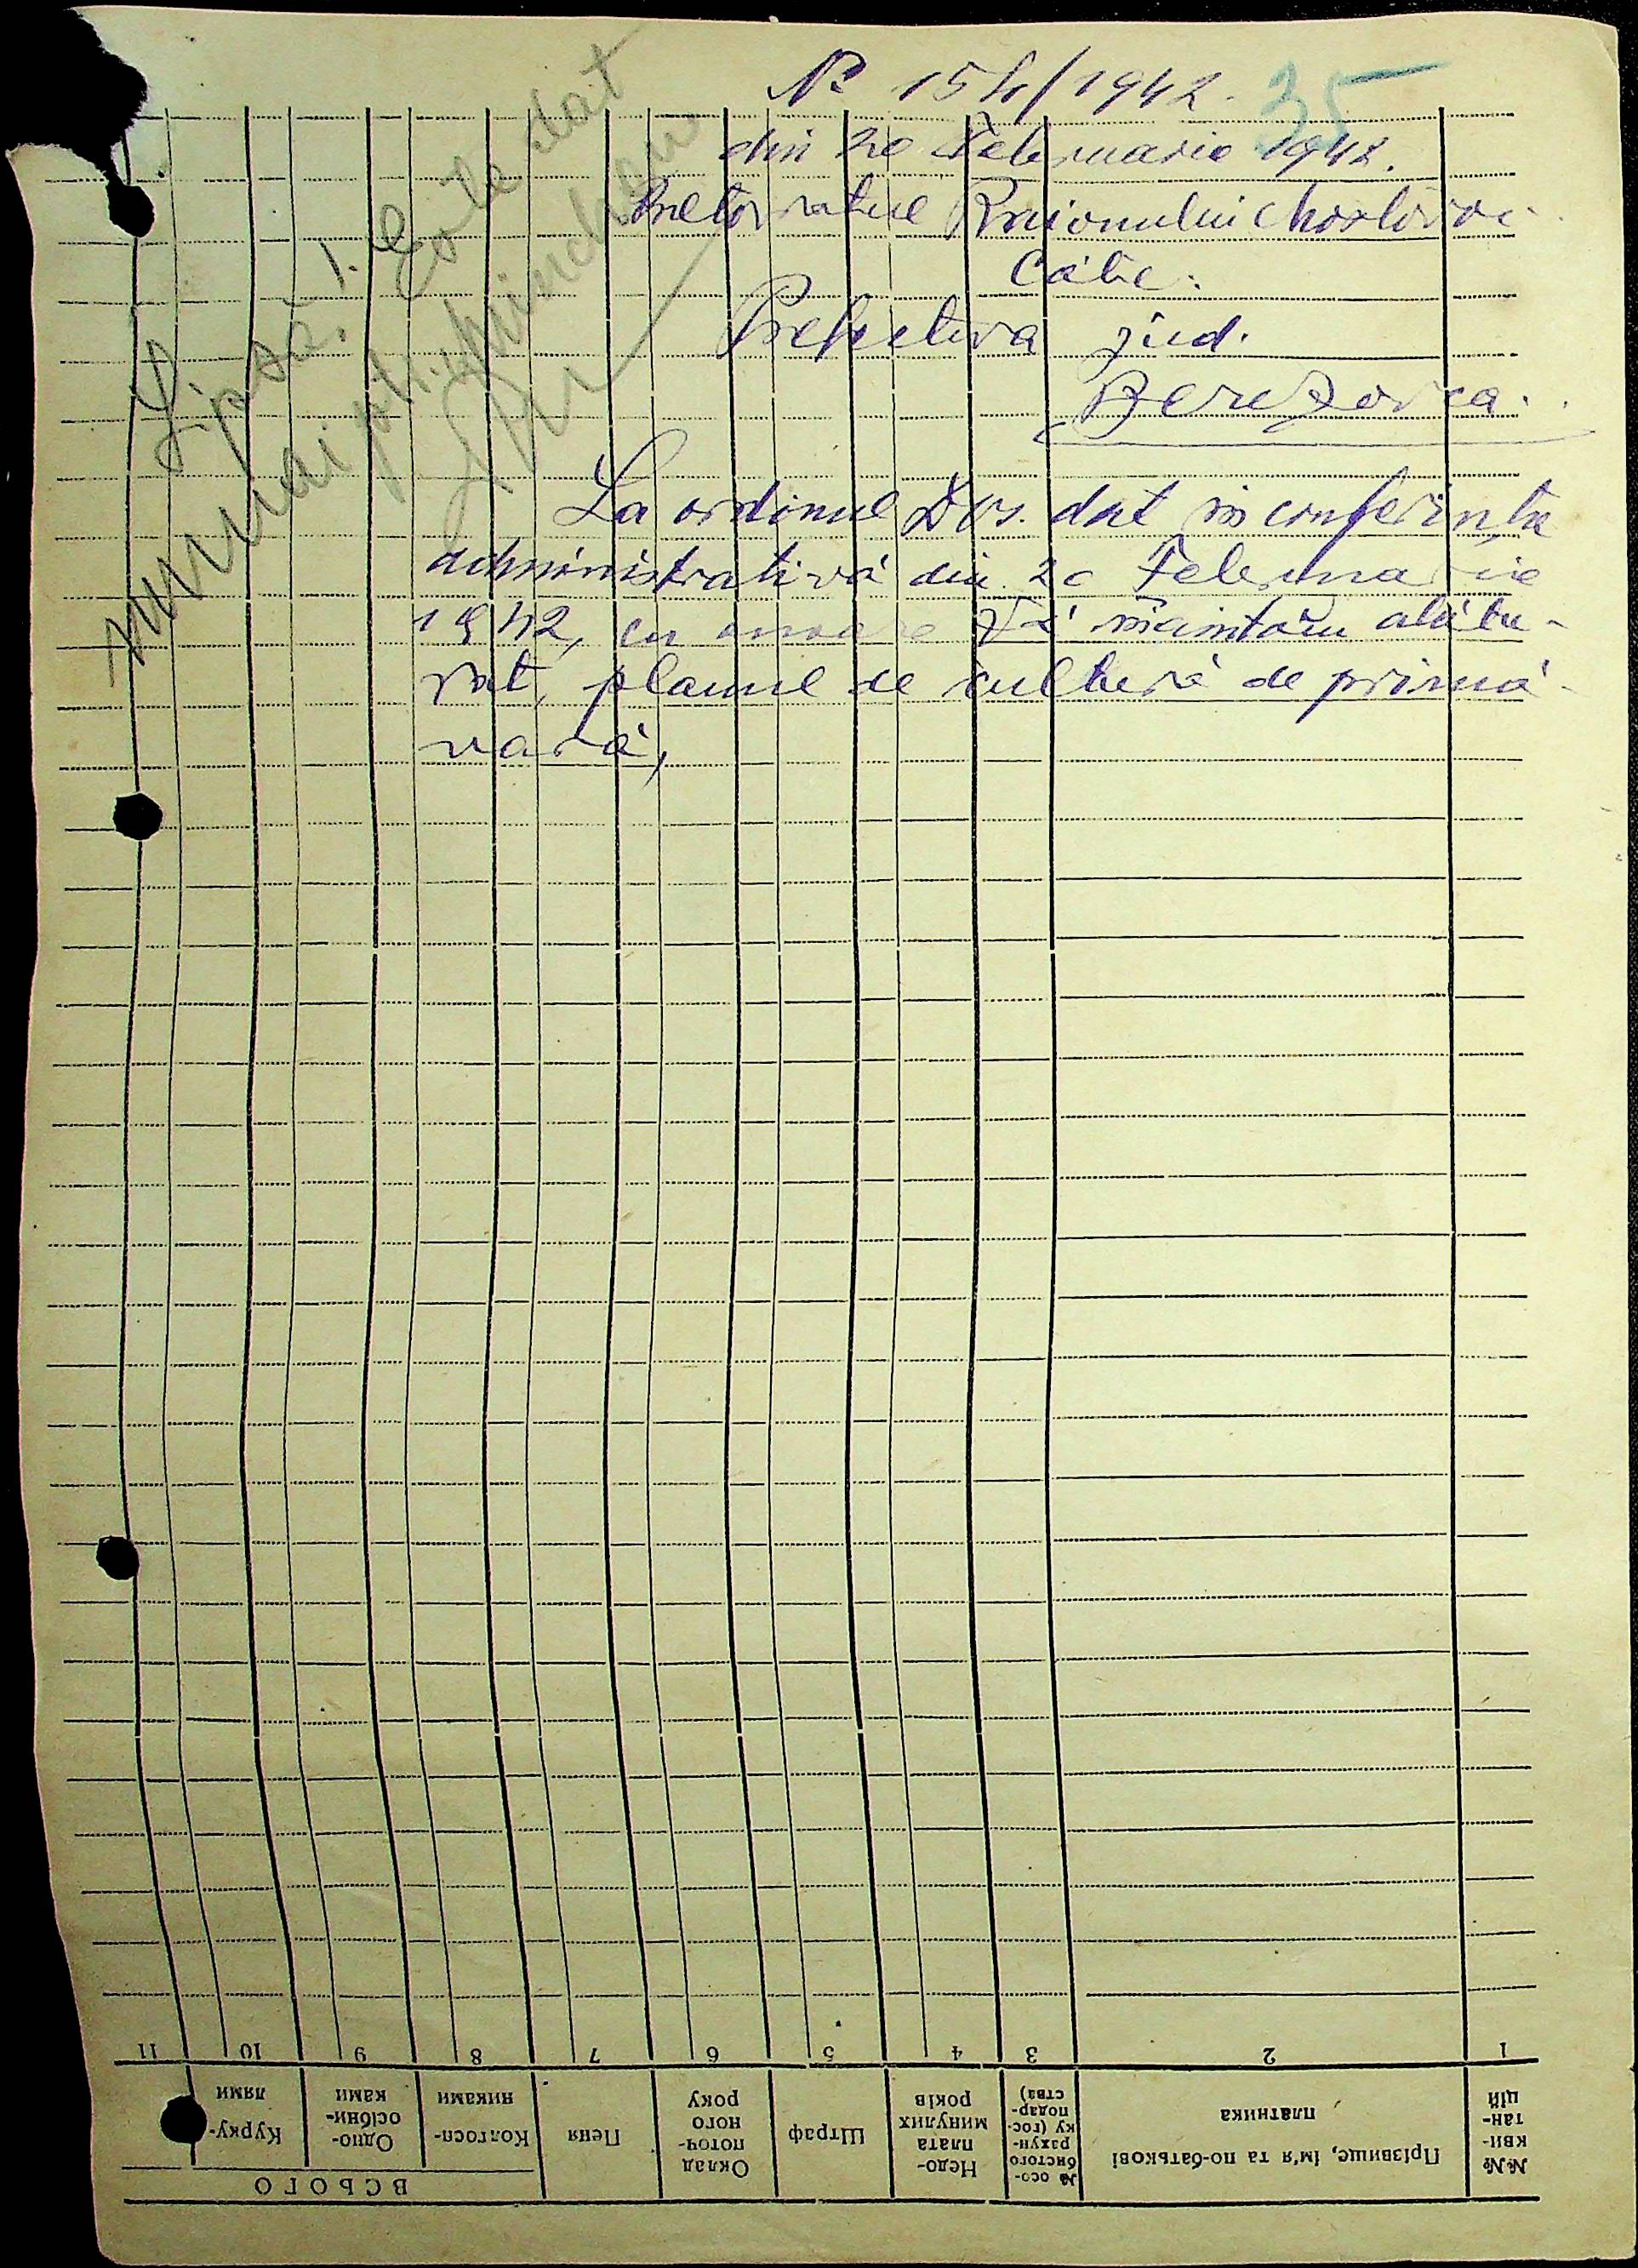 № 154/1942.
35
din 20 Februarie 1942.
Pretoratul Raionului Mostovoi
Către:
Prefectura jud.
Berezovca.
Lipsă. 1. Este dat
numai ptr.
La ordinul Dvs. dat în conferința
administrativă din 20 Februarie
1942, cu onoare Vă înaintăm alătu-
rat, planul de cultură de primă-
vară,
11 10 9 8 7 6 5 4 3 2 1
№№ кви- тан- цій
Прізвище, ім'я та по-батькові платника
№ осо- бистого рахун- ку (гос- подар- ства)
Недо- плата минулих років
Штраф
Оклад поточ- ного року
Пеня
Колгосп- никами
Одно- осібни- ками
Курку- лями
ВСЬОГО